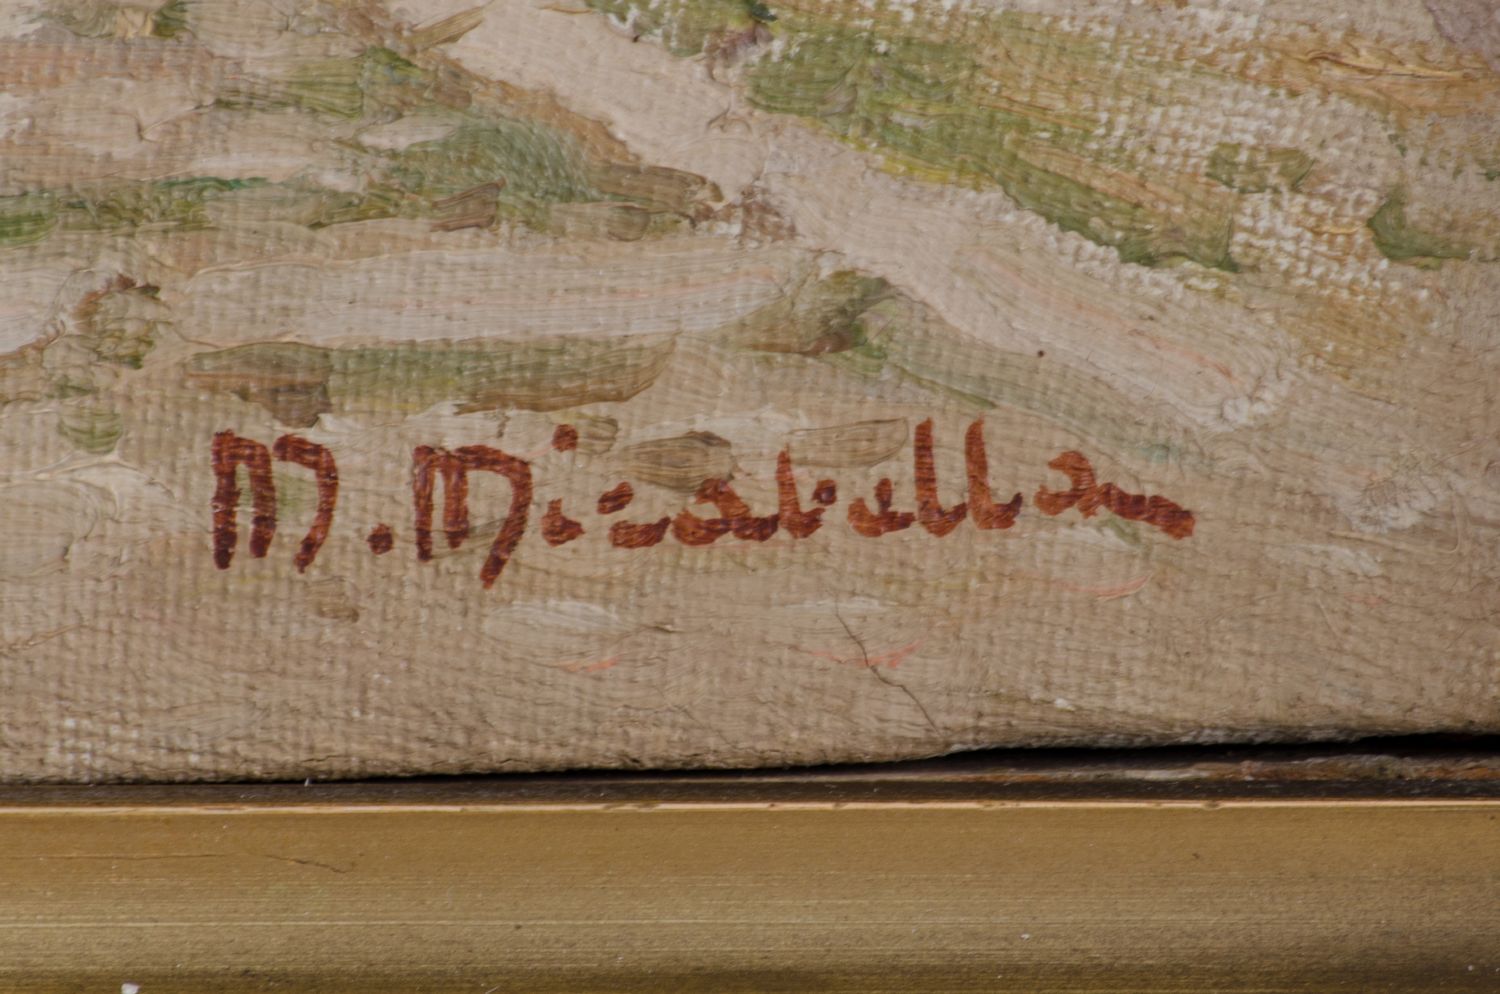 M. Mirabella